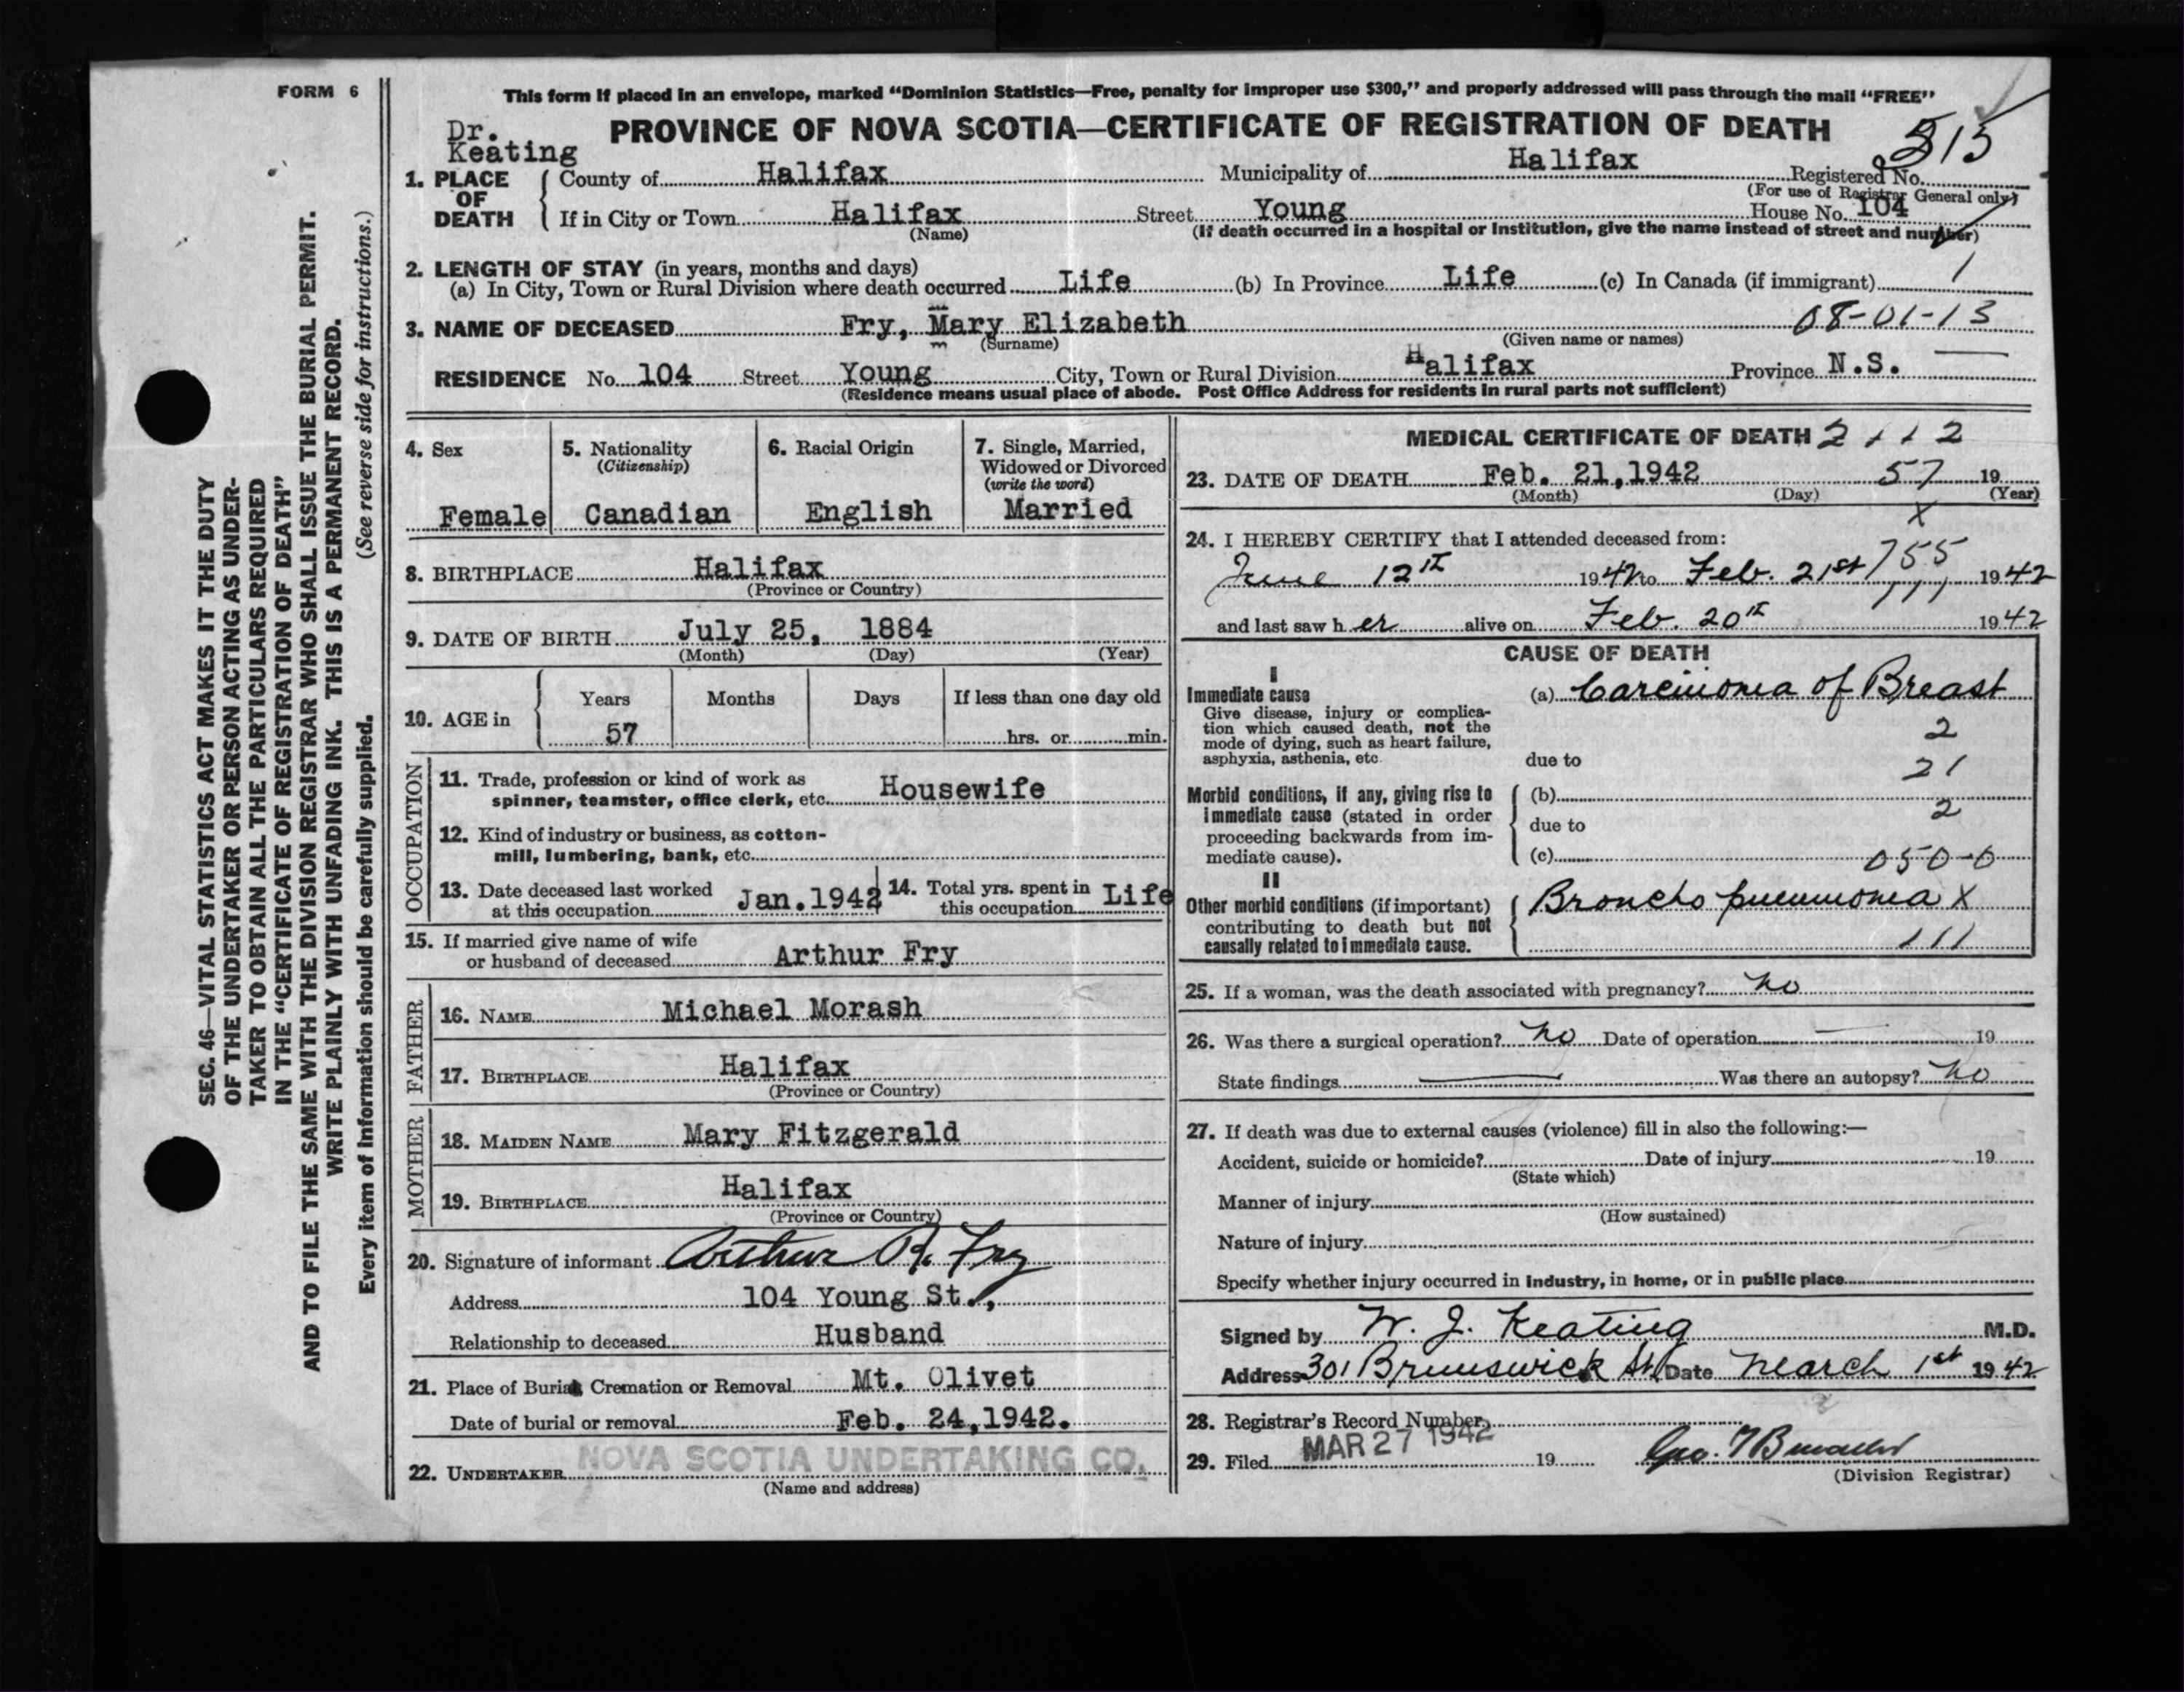 FORM 6
This form if placed in an envelope, marked "Dominion Statistics—Free, penalty for improper use $300," and properly addressed will pass through the mail "FREE"
Dr. Keating
PROVINCE OF NOVA SCOTIA—CERTIFICATE OF REGISTRATION OF DEATH
515
1. PLACE OF DEATH
County of Halifax Municipality of Halifax Registered No.
(For use of Registrar General only)
If in City or Town Halifax Street Young House No. 104
(Name) (If death occurred in a hospital or institution, give the name instead of street and number)
2. LENGTH OF STAY (in years, months and days)
(a) In City, Town or Rural Division where death occurred Life (b) In Province Life (c) In Canada (if immigrant) 1
3. NAME OF DECEASED Fry, Mary Elizabeth 08-01-13
(Surname) (Given name or names)
RESIDENCE No. 104 Street Young City, Town or Rural Division Halifax Province N.S.
(Residence means usual place of abode. Post Office Address for residents in rural parts not sufficient)
4. Sex
Female
5. Nationality
(Citizenship)
Canadian
6. Racial Origin
English
7. Single, Married,
Widowed or Divorced
(write the word)
Married
8. BIRTHPLACE Halifax
(Province or Country)
9. DATE OF BIRTH July 25, 1884
(Month) (Day) (Year)
10. AGE in
Years Months Days If less than one day old
57 hrs. or min.
OCCUPATION
11. Trade, profession or kind of work as
spinner, teamster, office clerk, etc. Housewife
12. Kind of industry or business, as cotton-
mill, lumbering, bank, etc.
13. Date deceased last worked
at this occupation Jan.1942
14. Total yrs. spent in
this occupation Life
15. If married give name of wife
or husband of deceased Arthur Fry
FATHER
16. NAME Michael Morash
17. BIRTHPLACE Halifax
(Province or Country)
MOTHER
18. MAIDEN NAME Mary Fitzgerald
19. BIRTHPLACE Halifax
(Province or Country)
20. Signature of informant Arthur R. Fry
Address 104 Young St.,
Relationship to deceased Husband
21. Place of Burial Cremation or Removal Mt. Olivet
Date of burial or removal Feb. 24,1942.
22. UNDERTAKER NOVA SCOTIA UNDERTAKING CO.
(Name and address)
MEDICAL CERTIFICATE OF DEATH 2 1 1 2
23. DATE OF DEATH Feb. 21,1942 57 19
(Month) (Day) (Year)
x
24. I HEREBY CERTIFY that I attended deceased from:
June 12th 1942 to Feb. 21st 755 1942
111
and last saw her alive on Feb. 20th 1942
CAUSE OF DEATH
I
Immediate cause (a) Carcinoma of Breast
Give disease, injury or complica-
tion which caused death, not the
mode of dying, such as heart failure,
asphyxia, asthenia, etc.
2
due to 21
Morbid conditions, if any, giving rise to
immediate cause (stated in order
proceeding backwards from im-
mediate cause).
(b)
2
due to
(c) 050-0
II
Other morbid conditions (if important)
contributing to death but not
causally related to immediate cause.
Broncho pneumonia X
111
25. If a woman, was the death associated with pregnancy? No
26. Was there a surgical operation? No Date of operation — 19
State findings — Was there an autopsy? No
27. If death was due to external causes (violence) fill in also the following:—
Accident, suicide or homicide? Date of injury 19
(State which)
Manner of injury
(How sustained)
Nature of injury
Specify whether injury occurred in industry, in home, or in public place
Signed by W. J. Keating M.D.
Address 301 Brunswick St. Date March 1st 1942
28. Registrar's Record Number
29. Filed MAR 27 1942 19
(Division Registrar)
SEC. 46—VITAL STATISTICS ACT MAKES IT THE DUTY
OF THE UNDERTAKER OR PERSON ACTING AS UNDER-
TAKER TO OBTAIN ALL THE PARTICULARS REQUIRED
IN THE "CERTIFICATE OF REGISTRATION OF DEATH"
AND TO FILE THE SAME WITH THE DIVISION REGISTRAR WHO SHALL ISSUE THE BURIAL PERMIT.
WRITE PLAINLY WITH UNFADING INK. THIS IS A PERMANENT RECORD.
Every item of information should be carefully supplied. (See reverse side for instructions.)